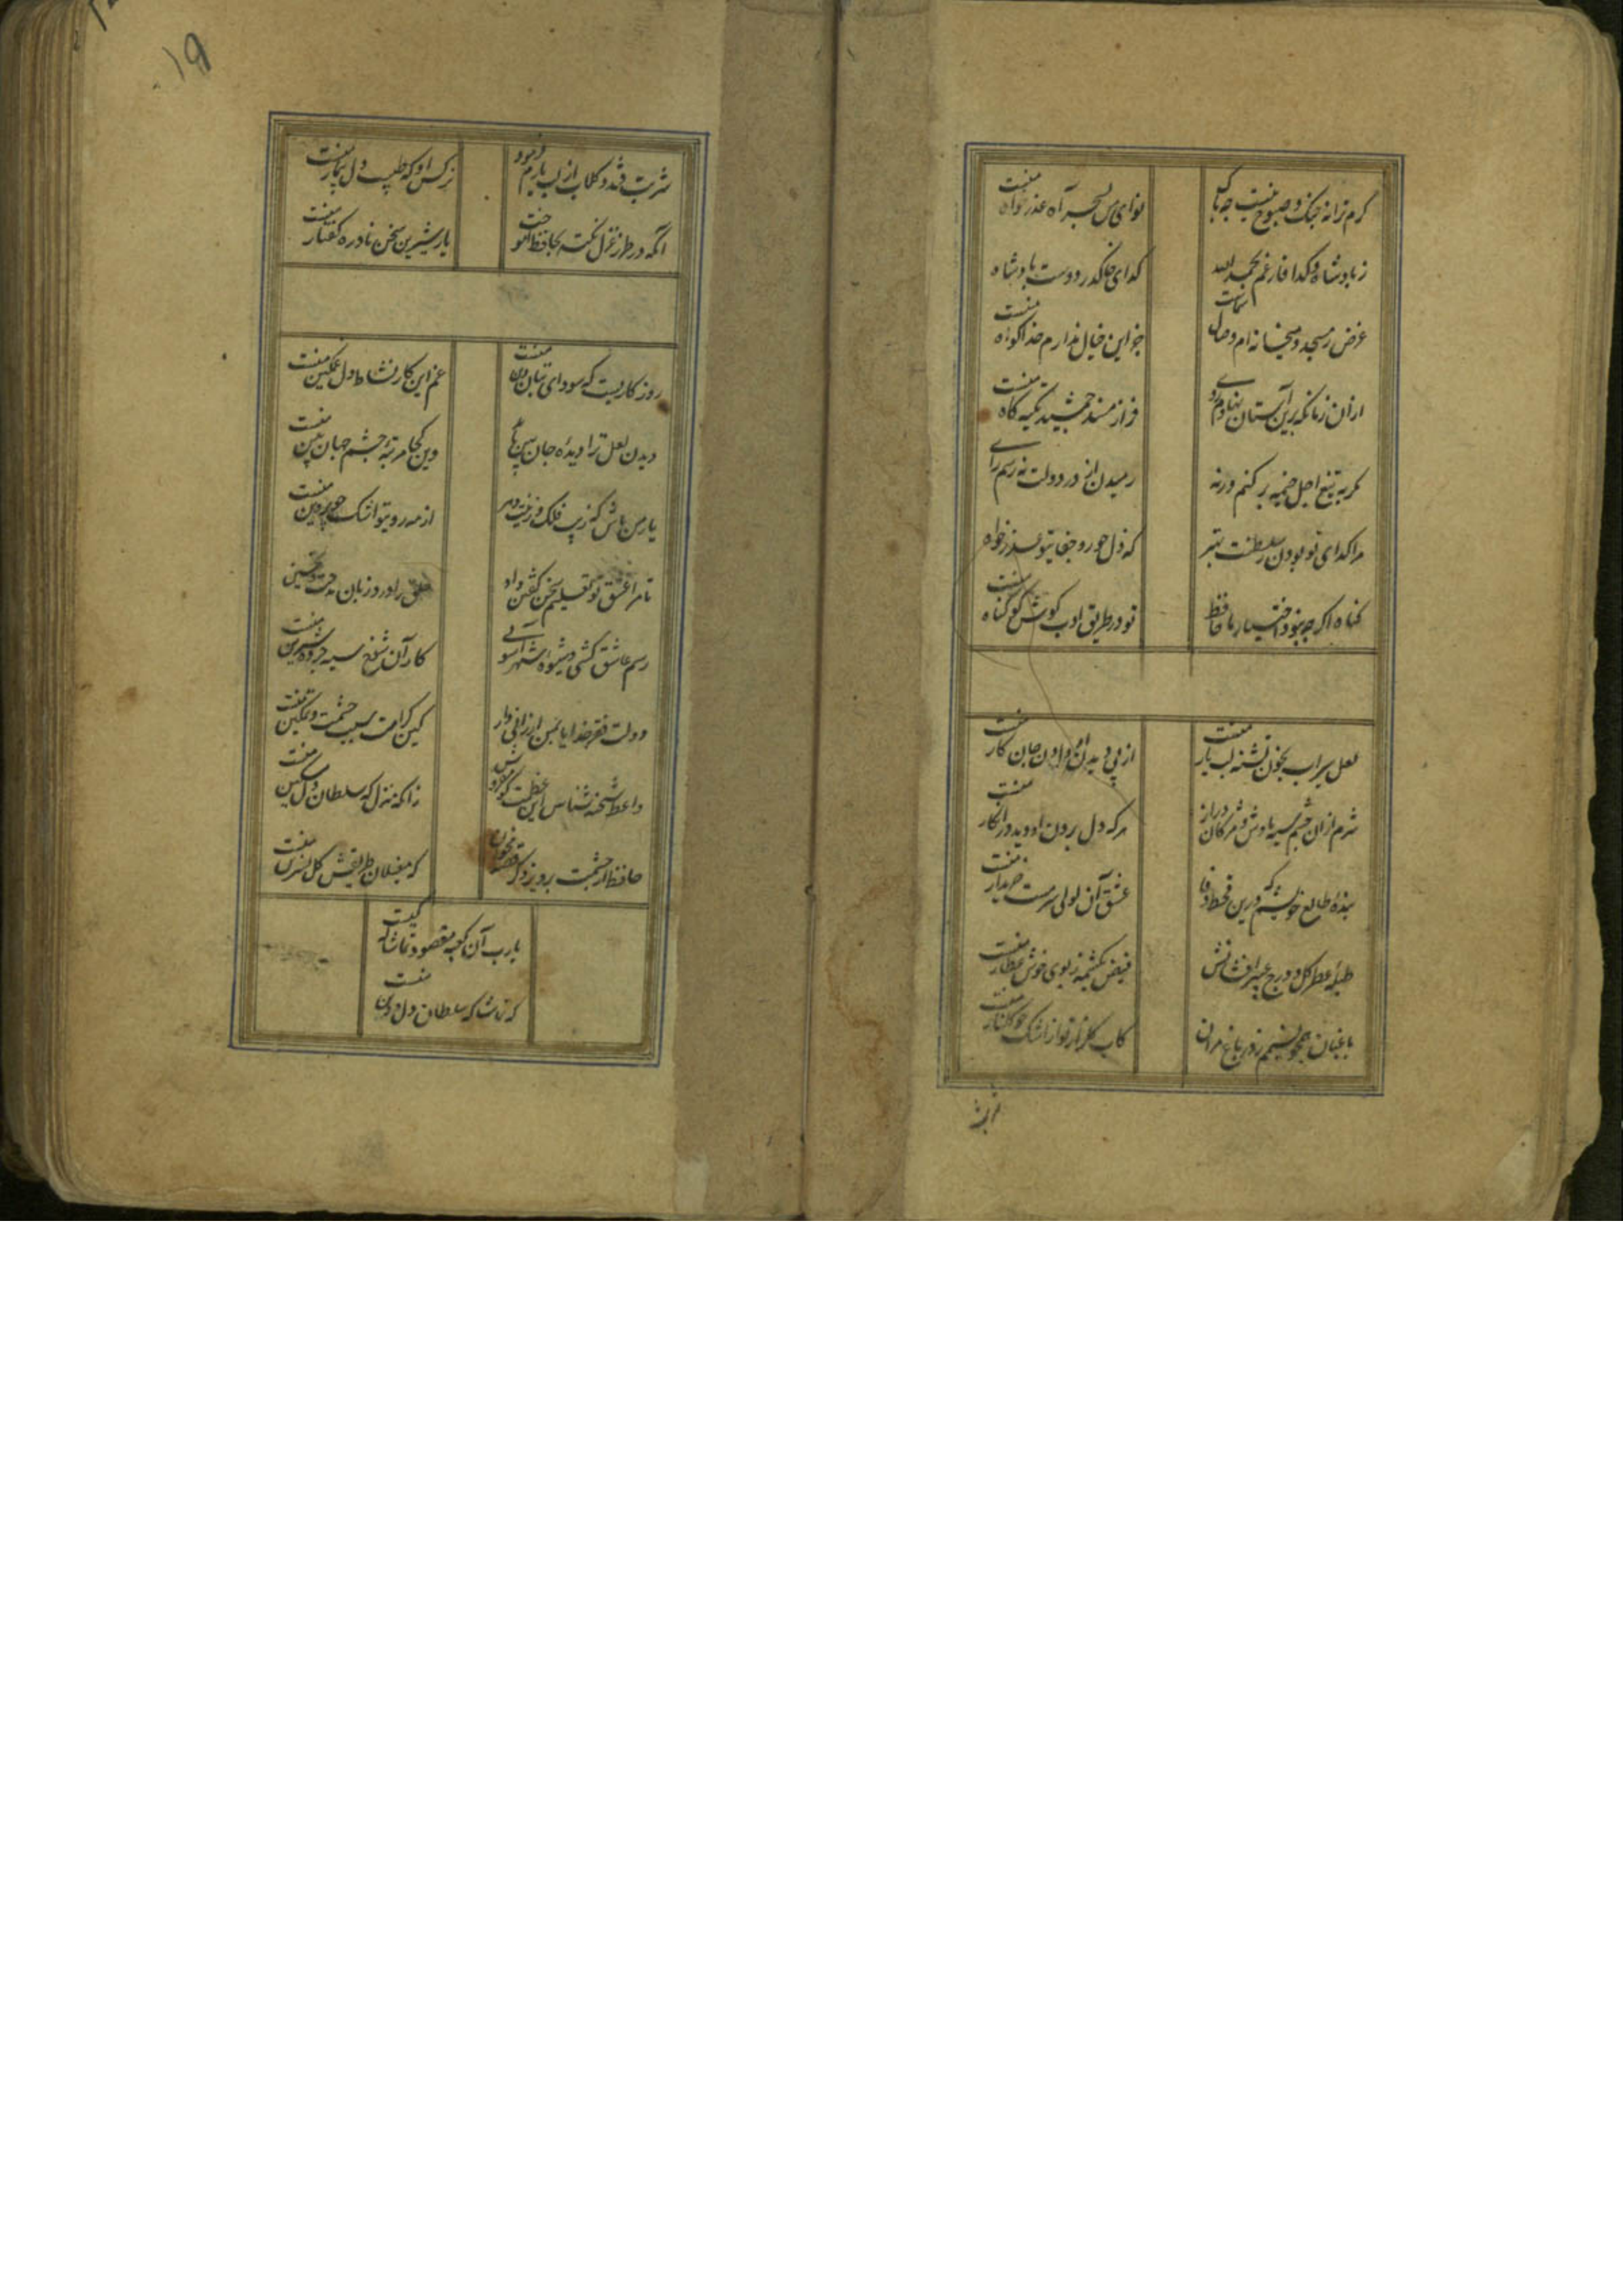 گرم ترانه چنگ و صبوح نیست چه باک
نوای من بسحر آه عذرخواه منست
ز پادشاه و گدا فارغم بحمد الله
گدای خاک در دوست پادشاه منست
غرض ز مسجد و میخانه ام وصال شماست
جز این خیال ندارم خدا گواه منست
ازان زمان که برین آستان نهادم روی
فراز مسند خورشید تکیه گاه منست
مگر به تیغ اجل خیمه بر کنم ورنه
رمیدن از در دولت نه رسم و راه
مرا گدای تو بودن ز سلطنت بهتر
که ذل جور و جفای تو عز و جاه
گناه اگر چه نبود اختیار ما حافظ
تو در طریق ادب کوش گو گناه منست
لعل سیراب بخون تشنه لب یار منست
از پی دیدن او دادن جان کار منست
شرم ازان چشم سیه بادش و مژگان دراز
هر که دل بردن او دید و در انکار منست
بنده طالع خویشم که درین قحط وفا
عشق آن لولی سرمست خریدار منست
طبله عطر گل و درج عبیر افشانش
فیض یک شمه ز بوی خوش عطار منست
باغبان همچو نسیمم ز در باغ مران
کاب گلزار تو از اشک چو گلنار منست
شربت
شربت قند و گلاب از لب یارم فرمود
نرگس او که طبیب دل بیمار منست
آنکه در طرز غزل نکته بحافظ آموخت
یار شیرین سخن نادره گفتار منست
روزگاریست که سودای بتان دین منست
غم این کار نشاط دل غمگین منست
دیدن لعل ترا دیده جان بین باید
وین کجا مرتبه چشم جهان بین منست
یار من باش که زیب فلک و زینت دهر
از مه روی تو و اشک چو پروین منست
تا مرا عشق تو تعلیم سخن گفتن داد
خلق را ورد زبان مدحت و تحسین
رسم عاشق کشی و شیوه شهرآشوبی
کار آن شوخ سیه چرده شیرین منست
دولت فقر خدایا بمن ارزانی دار
کین کرامت سبب حشمت و تمکین منست
واعظ شحنه شناس این عظمت گو مفروش
زانکه منزلگه سلطان دل مسکین منست
حافظ از حشمت پرویز دگر قصه مخوان
یارب آن کعبه مقصود تماشاگه کیست
که مغیلان طریقش گل نسرین منست